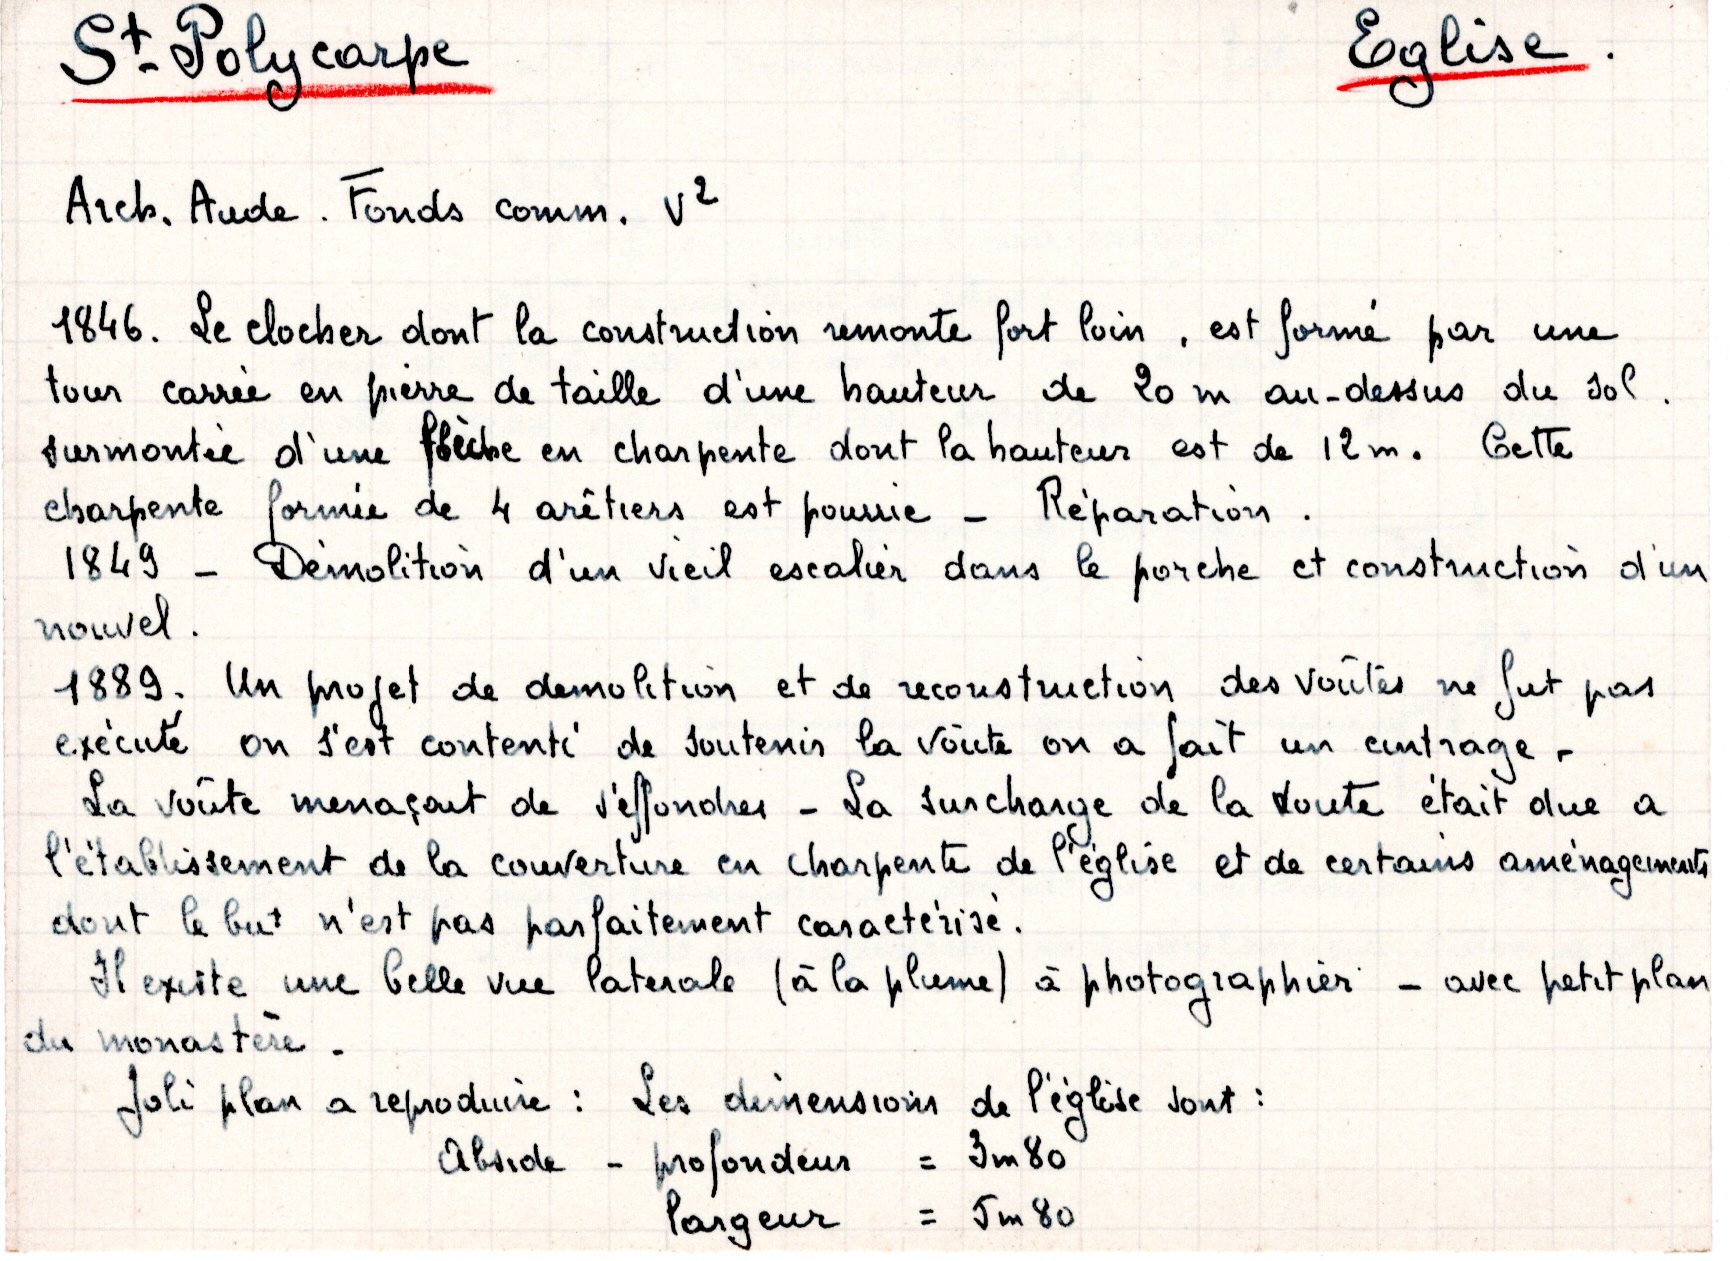 St Polycarpe Eglise.
Arch. Aude. Fonds comm. V²
1846. Le clocher dont la construction remonte fort loin, est formé par une
tour carrée en pierre de taille d'une hauteur de 20 m au-dessus du sol.
surmontée d'une flèche en charpente dont la hauteur est de 12 m. Cette
charpente formée de 4 arêtiers est pourrie - Réparation.
1849 - Démolition d'un vieil escalier dans le porche et construction d'un
nouvel.
1889. Un projet de demolition et de reconstruction des voûtes ne fut pas
exécuté on s'est contenté de soutenir la voûte on a fait un cintrage -
La voûte menaçant de s'effondrer - La surcharge de la voute était due a
l'établissement de la couverture en charpente de l'église et de certains aménagements
dont le but n'est pas parfaitement caractérisé.
Il existe une belle vue laterale (à la plume) à photographier - avec petit plan
du monastère -
Joli plan a reproduire : Les dimensions de l'église sont :
Abside - profondeur = 3m80
largeur = 5m80